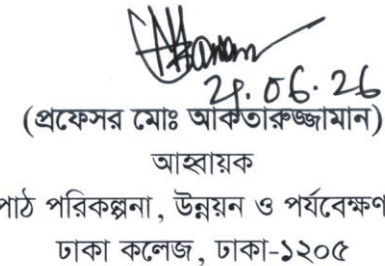 (প্রফেসর মোঃ আকতারুজ্জামান)
আহ্বায়ক
পাঠ পরিকল্পনা, উন্নয়ন ও পর্যবেক্ষণ
ঢাকা কলেজ, ঢাকা-১২০৫